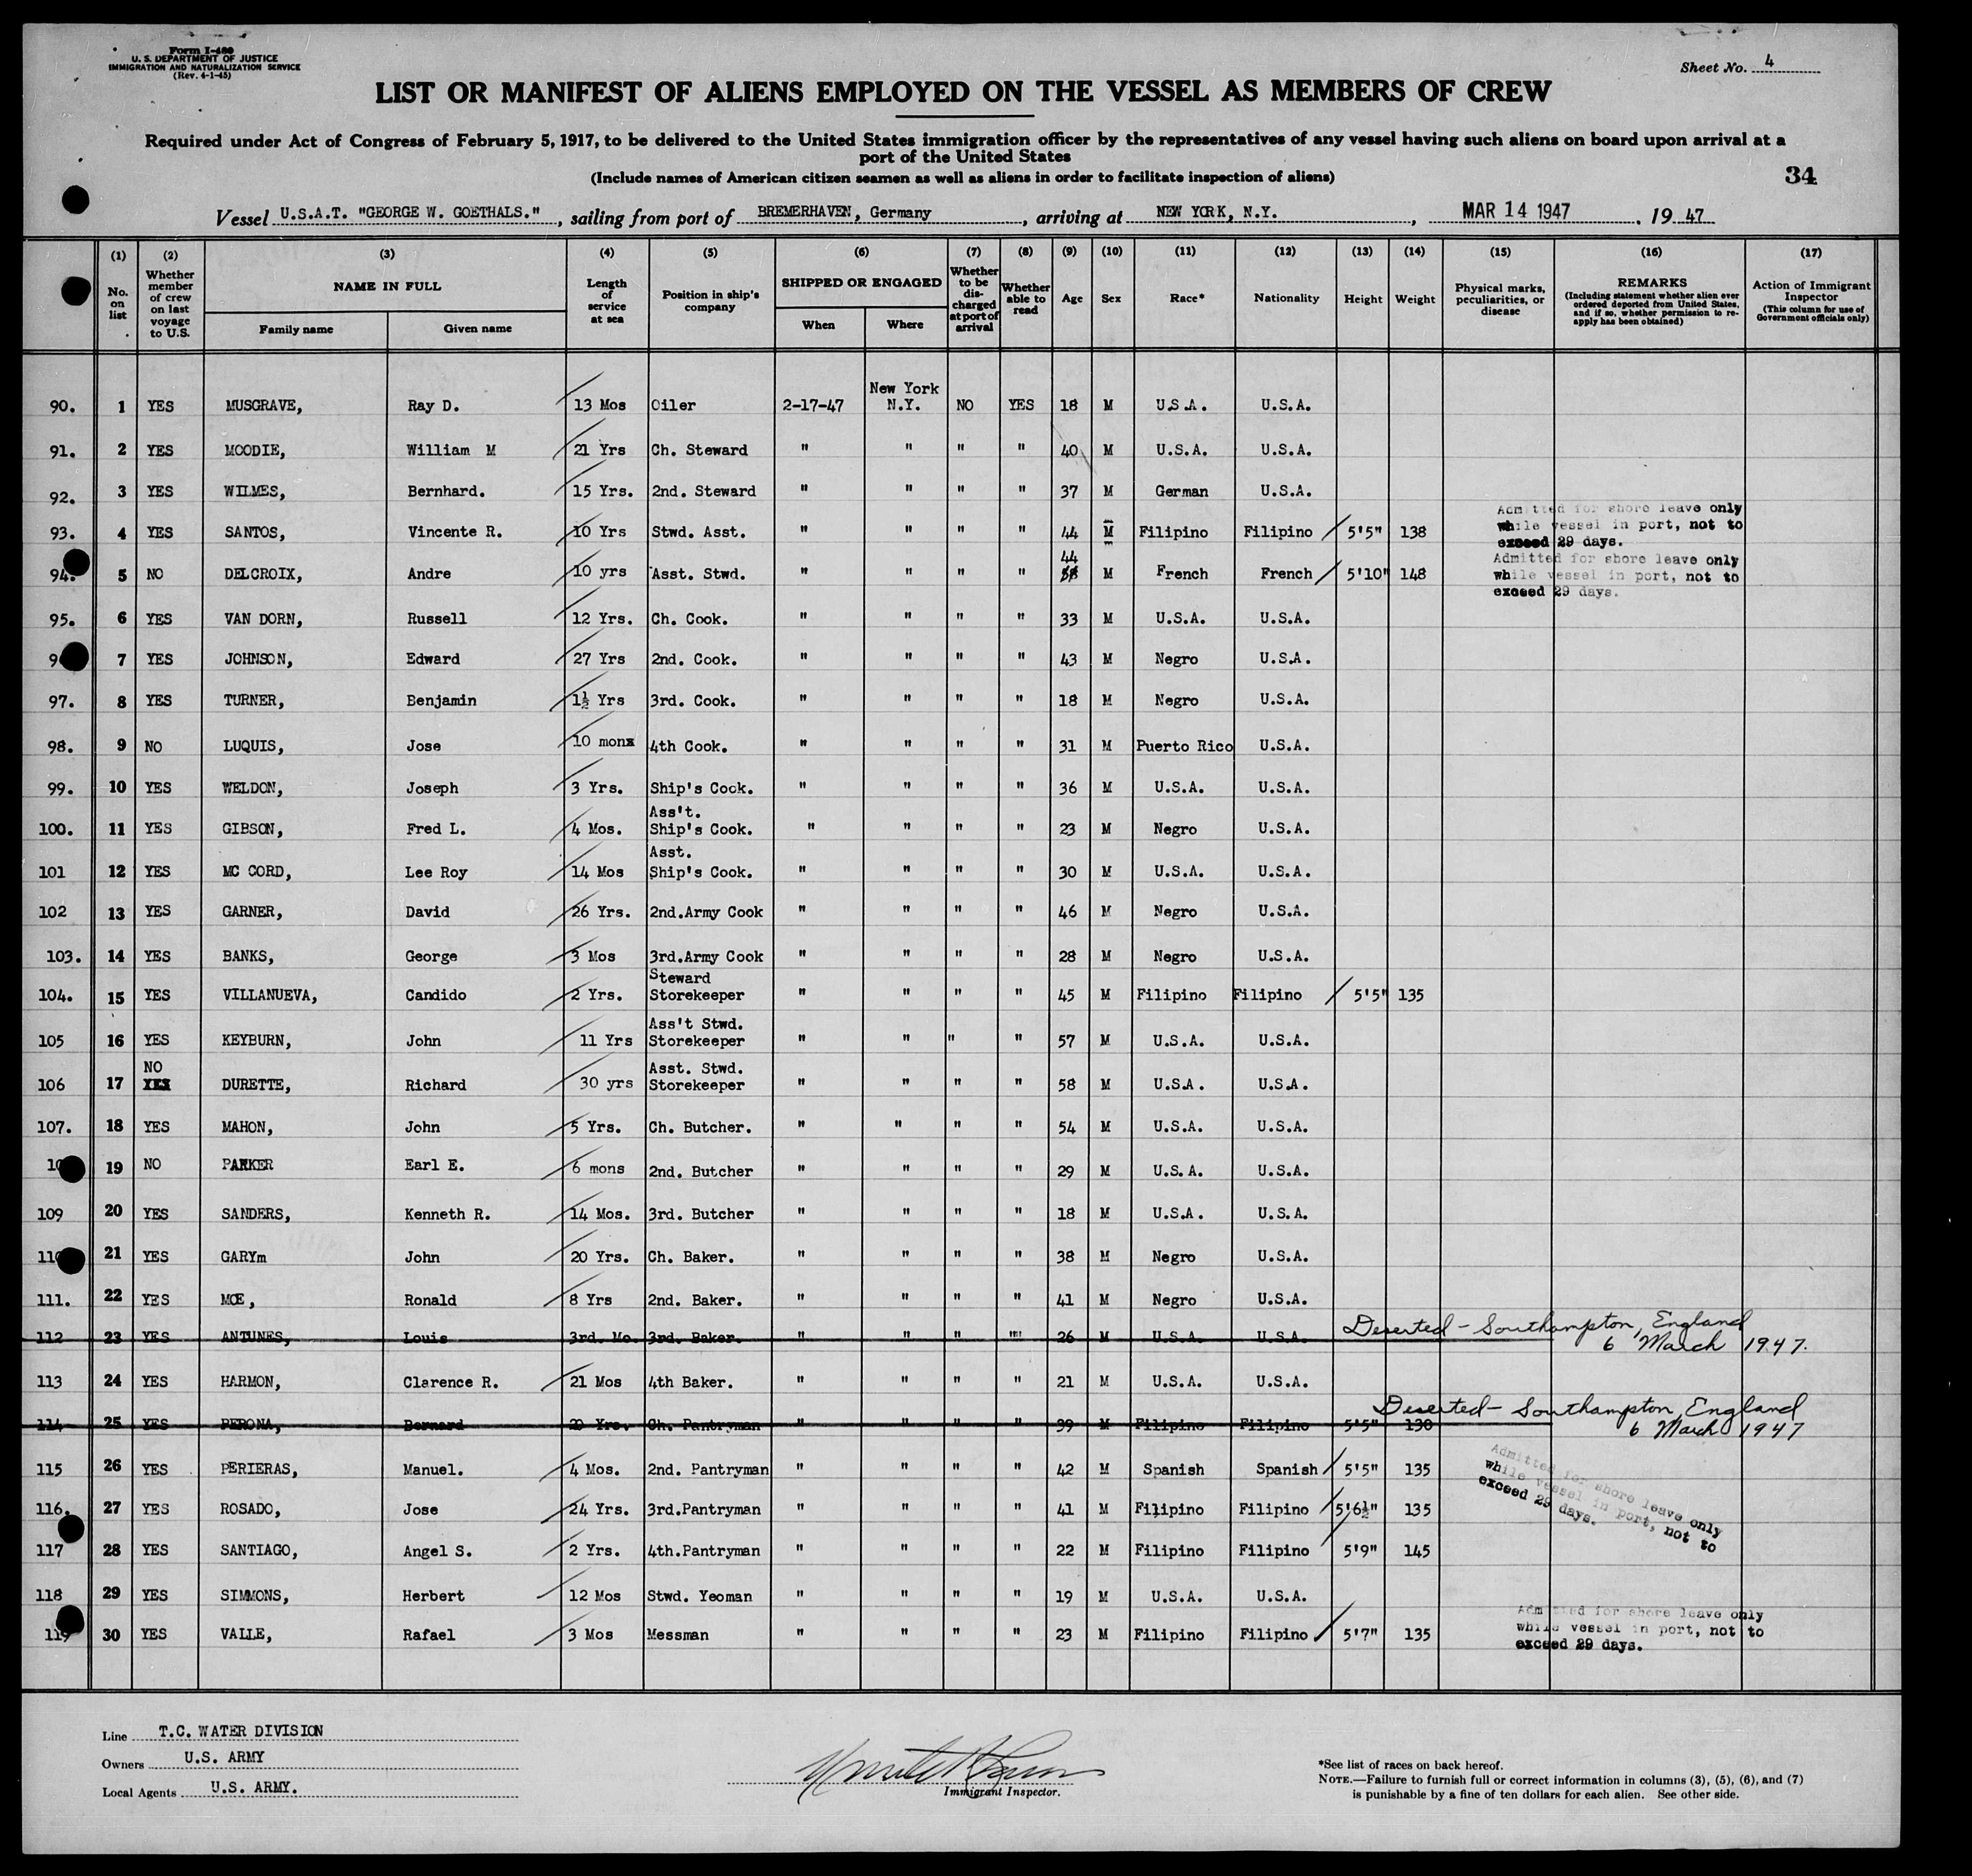 Form I-480
U. S. DEPARTMENT OF JUSTICE
IMMIGRATION AND NATURALIZATION SERVICE
(Rev. 4-1-45)
Sheet No. 4
LIST OR MANIFEST OF ALIENS EMPLOYED ON THE VESSEL AS MEMBERS OF CREW
Required under Act of Congress of February 5, 1917, to be delivered to the United States immigration officer by the representatives of any vessel having such aliens on board upon arrival at a
port of the United States
(Include names of American citizen seamen as well as aliens in order to facilitate inspection of aliens)
34
Vessel U.S.A.T. "GEORGE W. GOETHALS." , sailing from port of BREMERHAVEN, Germany , arriving at NEW YORK, N.Y. , MAR 14 1947 , 19 47
(1) No. on list
(2) Whether member of crew on last voyage to U.S.
(3) NAME IN FULL Family name Given name
(4) Length of service at sea
(5) Position in ship's company
(6) SHIPPED OR ENGAGED When Where
(7) Whether to be discharged at port of arrival
(8) Whether able to read
(9) Age
(10) Sex
(11) Race*
(12) Nationality
(13) Height
(14) Weight
(15) Physical marks, peculiarities, or disease
(16) REMARKS (Including statement whether alien ever ordered deported from United States, and if so, whether permission to re-apply has been obtained)
(17) Action of Immigrant Inspector (This column for use of Government officials only)
90. 1 YES MUSGRAVE, Ray D. 13 Mos Oiler 2-17-47 New York N.Y. NO YES 18 M U.S.A. U.S.A.
91. 2 YES MOODIE, William M 21 Yrs Ch. Steward " " " " 40 M U.S.A. U.S.A.
92. 3 YES WILMES, Bernhard. 15 Yrs. 2nd. Steward " " " " 37 M German U.S.A.
93. 4 YES SANTOS, Vincente R. 10 Yrs Stwd. Asst. " " " " 44 M Filipino Filipino 5'5" 138 Admitted for shore leave only while vessel in port, not to exceed 29 days.
94. 5 NO DELCROIX, Andre 10 yrs Asst. Stwd. " " " " 44 M French French 5'10" 148 Admitted for shore leave only while vessel in port, not to exceed 29 days.
95. 6 YES VAN DORN, Russell 12 Yrs. Ch. Cook. " " " " 33 M U.S.A. U.S.A.
9 7 YES JOHNSON, Edward 27 Yrs 2nd. Cook. " " " " 43 M Negro U.S.A.
97. 8 YES TURNER, Benjamin 1½ Yrs 3rd. Cook. " " " " 18 M Negro U.S.A.
98. 9 NO LUQUIS, Jose 10 monx 4th Cook. " " " " 31 M Puerto Rico U.S.A.
99. 10 YES WELDON, Joseph 3 Yrs. Ship's Cook. " " " " 36 M U.S.A. U.S.A.
100. 11 YES GIBSON, Fred L. 4 Mos. Ass't. Ship's Cook. " " " " 23 M Negro U.S.A.
101 12 YES MC CORD, Lee Roy 14 Mos Asst. Ship's Cook. " " " " 30 M U.S.A. U.S.A.
102 13 YES GARNER, David 26 Yrs. 2nd.Army Cook " " " " 46 M Negro U.S.A.
103. 14 YES BANKS, George 3 Mos 3rd.Army Cook " " " " 28 M Negro U.S.A.
104. 15 YES VILLANUEVA, Candido 2 Yrs. Steward Storekeeper " " " " 45 M Filipino Filipino 5'5" 135
105 16 YES KEYBURN, John 11 Yrs Ass't Stwd. Storekeeper " " " " 57 M U.S.A. U.S.A.
106 17 NO DURETTE, Richard 30 yrs Asst. Stwd. Storekeeper " " " " 58 M U.S.A. U.S.A.
107. 18 YES MAHON, John 5 Yrs. Ch. Butcher. " " " " 54 M U.S.A. U.S.A.
10 19 NO PARKER Earl E. 6 mons 2nd. Butcher " " " " 29 M U.S.A. U.S.A.
109 20 YES SANDERS, Kenneth R. 14 Mos. 3rd. Butcher " " " " 18 M U.S.A. U.S.A.
110 21 YES GARYm John 20 Yrs. Ch. Baker. " " " " 38 M Negro U.S.A.
111. 22 YES MOE, Ronald 8 Yrs 2nd. Baker. " " " " 41 M Negro U.S.A.
112 23 YES ANTUNES, Louis 3rd. Mo. 3rd. Baker. " " " " 26 M U.S.A. U.S.A. Deserted - Southampton, England 6 March 1947.
113 24 YES HARMON, Clarence R. 21 Mos 4th Baker. " " " " 21 M U.S.A. U.S.A.
114 25 YES PERONA, Bernard 20 Yrs. Ch. Pantryman " " " " 39 M Filipino Filipino 5'5" 130 Deserted - Southampton, England 6 March 1947
115 26 YES PERIERAS, Manuel. 4 Mos. 2nd. Pantryman " " " " 42 M Spanish Spanish 5'5" 135 Admitted for shore leave only while vessel in port, not to exceed 29 days.
116. 27 YES ROSADO, Jose 24 Yrs. 3rd.Pantryman " " " " 41 M Filipino Filipino 5'6½" 135
117 28 YES SANTIAGO, Angel S. 2 Yrs. 4th.Pantryman " " " " 22 M Filipino Filipino 5'9" 145
118 29 YES SIMMONS, Herbert 12 Mos Stwd. Yeoman " " " " 19 M U.S.A. U.S.A.
119 30 YES VALLE, Rafael 3 Mos Messman " " " " 23 M Filipino Filipino 5'7" 135 Admitted for shore leave only while vessel in port, not to exceed 29 days.
Line T.C. WATER DIVISION
Owners U.S. ARMY
Local Agents U.S. ARMY.
Immigrant Inspector.
*See list of races on back hereof.
NOTE.—Failure to furnish full or correct information in columns (3), (5), (6), and (7)
is punishable by a fine of ten dollars for each alien. See other side.